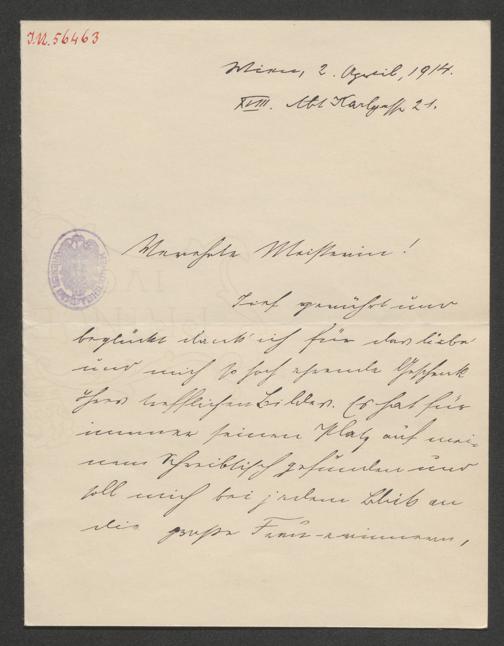 I.N. 56463
Wien, 2. April, 1914.
XVIII. Abt Karlgasse 21.
Verehrte Meisterin!
Tief gerührt und
beglückt dank' ich für das liebe
und mich so hoch ehrende Geschenk
Ihres trefflichen Bildes. Es hat für
immer seinen Platz auf mei-
nem Schreibtisch gefunden und
soll mich bei jedem Blick an
die große Frau erinnern,